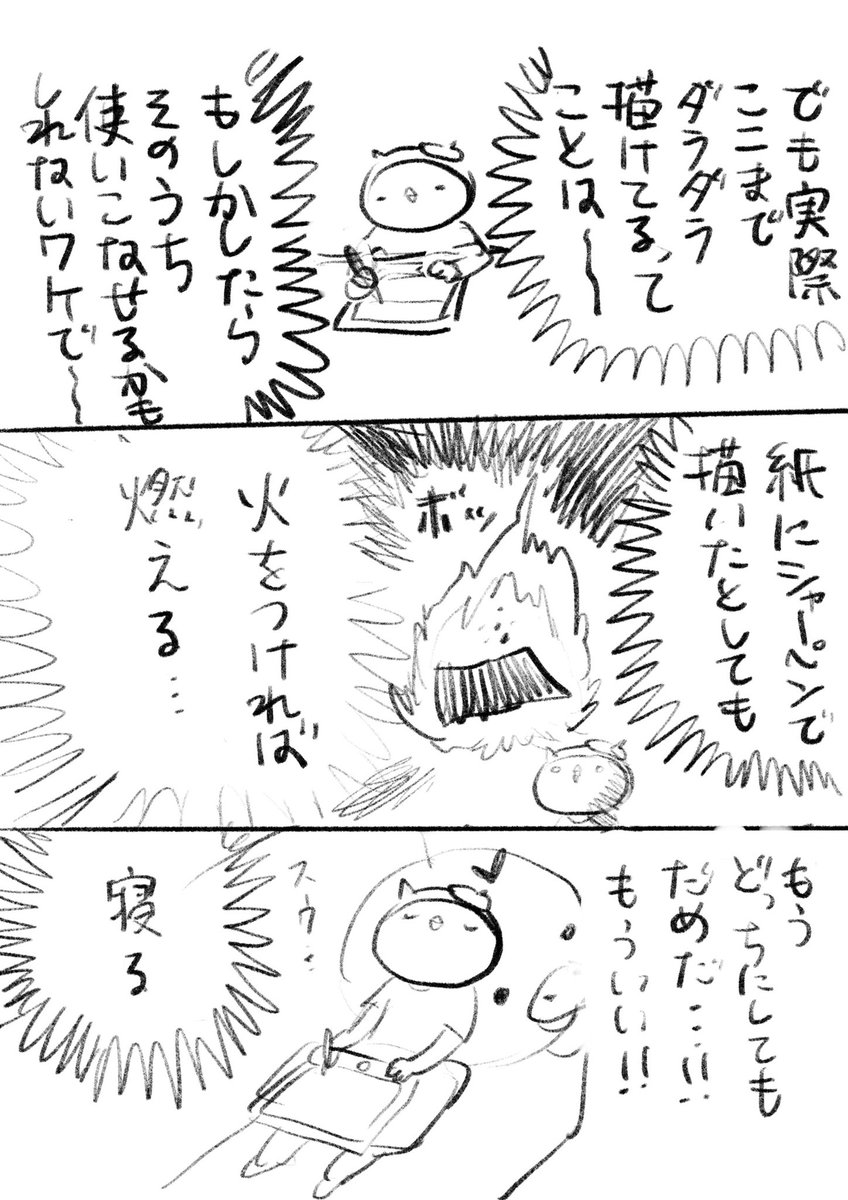 でも実際
ここまで
ダラダラ
描けてる、って
ことは〜〜
もしかしたら
そのうち
使いこなせるかも
しれないワケで〜〜
紙にシャーペンで
描いたとしても
ボッ
火をつければ
燃える…
もう
どっちにしても
ためだ…!!
もういい!!
スウ…
寝る